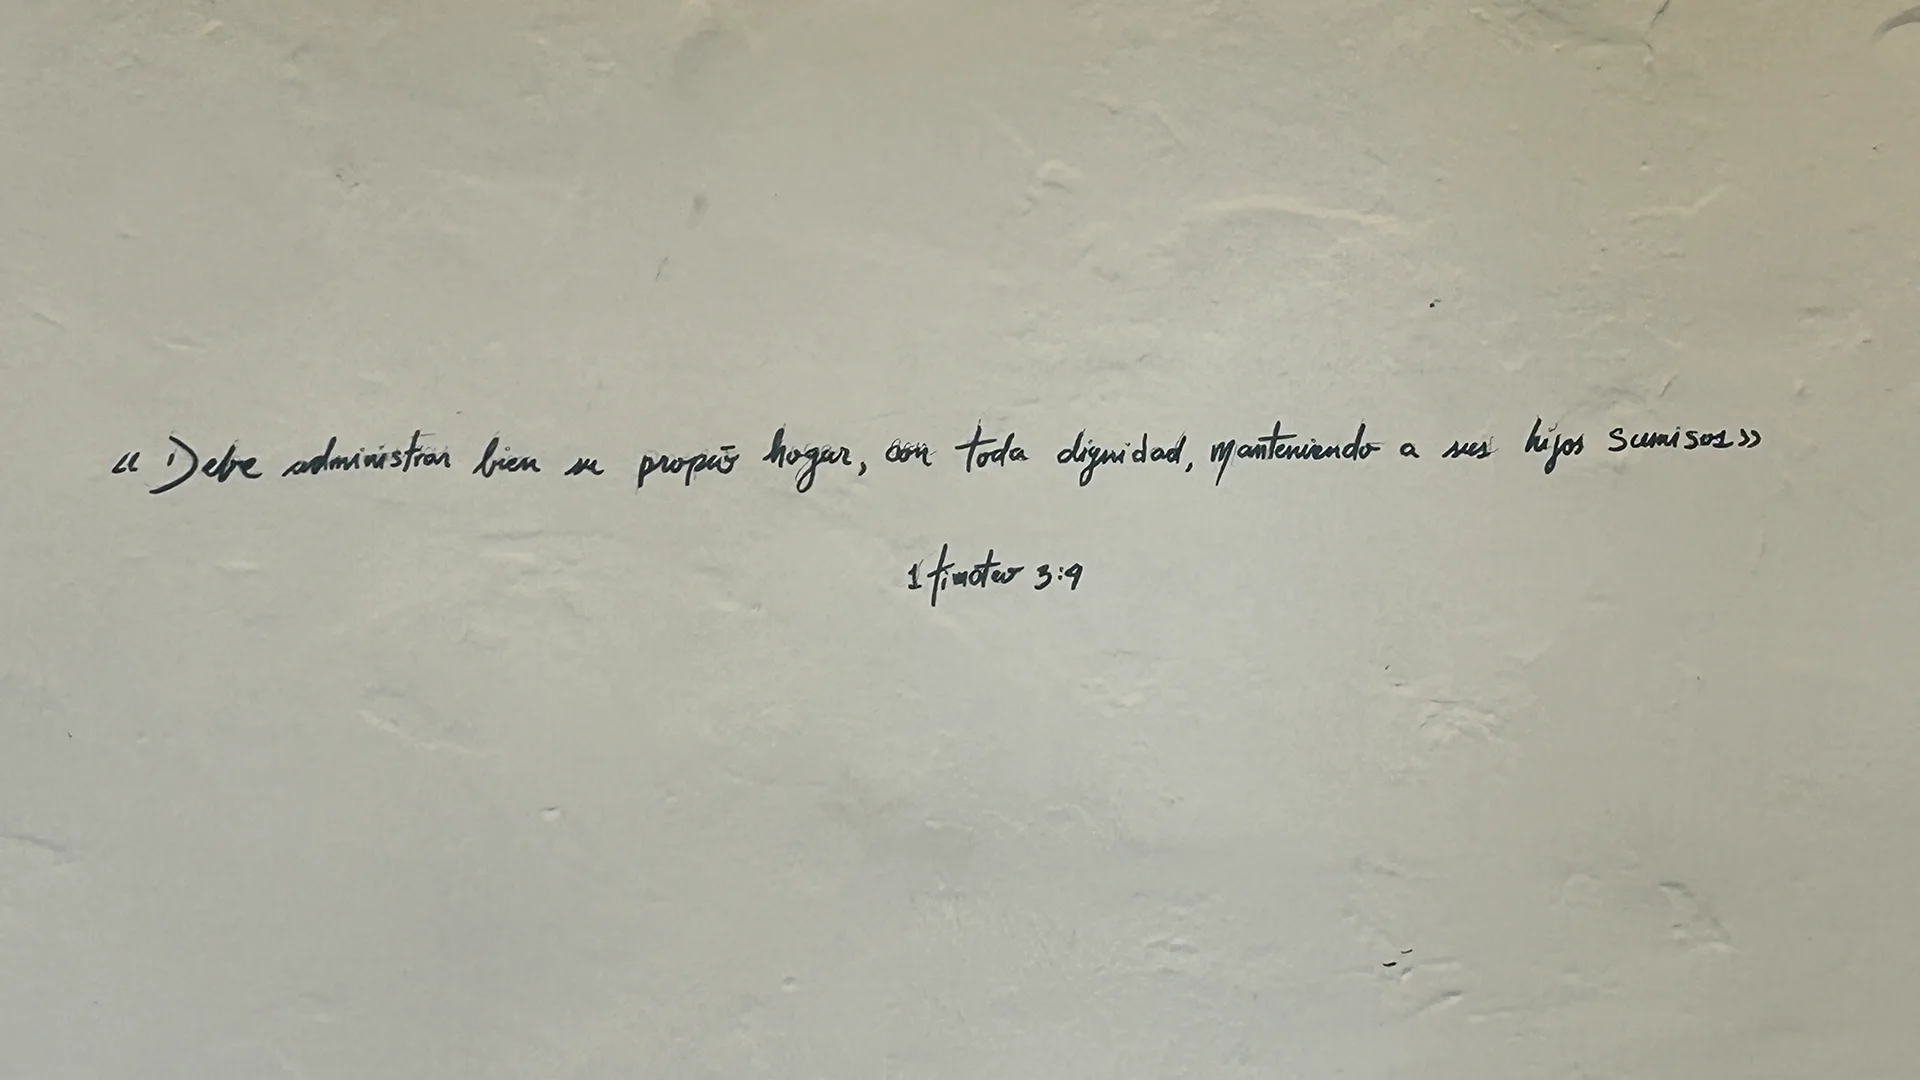 «Debe administrar bien su propio hogar, con toda dignidad, manteniendo a sus hijos sumisos»
1 timoteo 3:4